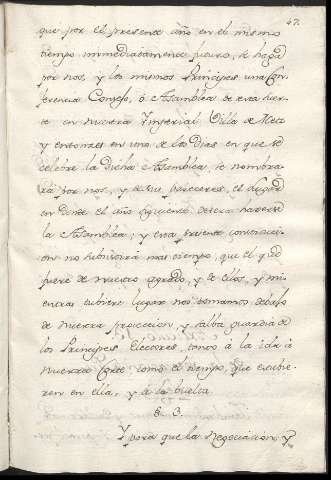 47.
que por el presente año en el mismo
tiempo immediatamente pasado, se haga
por nos, y los mismos Principes una Con-
ferencia Consejo, ó Asamblea de esta suer-
te en nuestra Imperial Villa de Metz
y entonzes en uno de los Dias en que se
celebre la Dicha Asamblea, se nombra-
rá por nos, y el lugar
en donde el año siguiente devera hacerse
la Asamblea; y esta presente constituci-
on no subsistirá mas tiempo, que el que
fuere de nuestro agrado, y de ellos, y mi-
entras tubiere lugar nos tomamos debajo
de nuestra proteccion, y salba guardia de
los Principes Electores, tanto á la ida á
nuestra Corte como el tiempo, que estubie-
ren en ella, y á la buelta.
§. 3.
Y para que la negociacion y